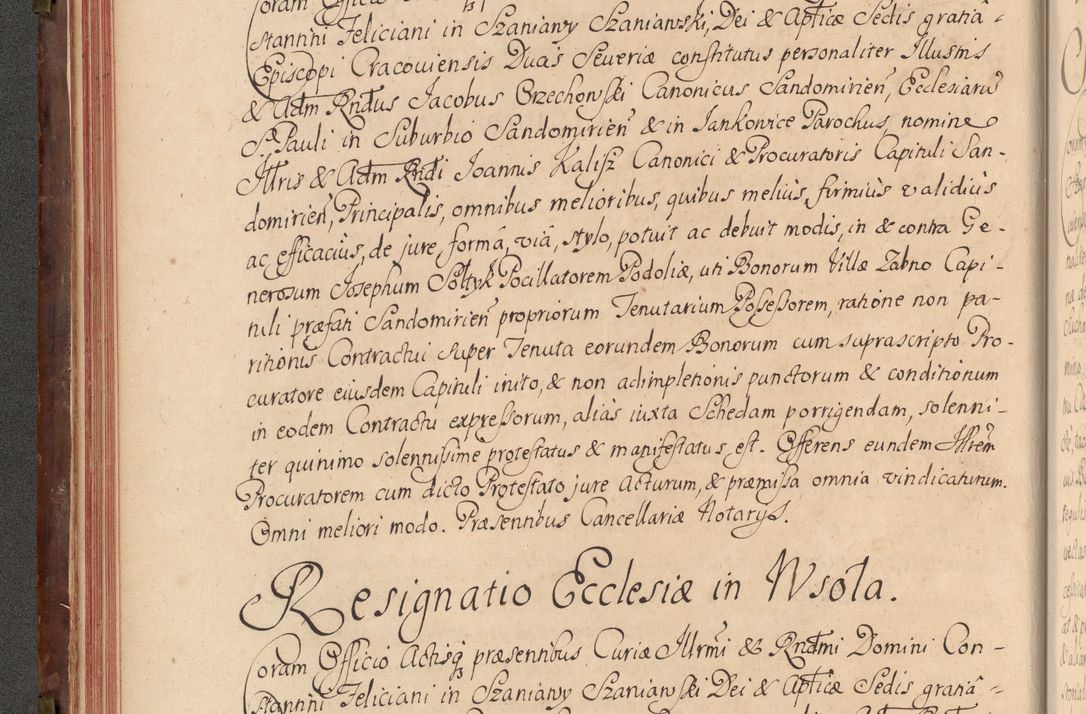 Coram Officio
stantini Feliciani in Szaniawy Szaniawski, Dei & Apticæ Sedis gratiâ =
Episcopi Cracoviensis Ducis Severiæ constitutus personaliter Illustris
& Adm Rndus Jacobus Orzechowski Canonicus Sandomirien, Ecclesiarũ
S. Pauli in Suburbio Sandomirien & in Jankowice Parochus, nomine
Illris & Adm Rndi Joannis Kalisz Canonici & Procuratoris Capituli San-
domirien, Principalis, omnibus melioribus, quibus meliùs, firmiùs validiùs
ac efficaciùs, de jure, formâ, viâ, stylo, potuit ac debuit modis, in & contra Ge-
nerosum Josephum Sołtyk Pocillatorem Podoliæ, uti Bonorum Villæ Zabno Capi-
tuli præfati Sandomirien propriorum Tenutarium Possessorem, ratione non pa-
ritionis Contractui super Tenuta eorundem Bonorum cum suprascripto Pro-
curatore eiusdem Capituli inito, & non adimpletionis punctorum & conditionum
in eodem Contractu expressorum, aliàs iuxta Schedam porrigendam, solenni-
ter quinimo solennissime protestatus & manifestatus est. Offerens eundem Illrem
Procuratorem cum dicto Protestato jure Acturum, & præmissa omnia vindicaturum.
Omni meliori modo. Præsentibus Cancellariæ Notarijs.
Resignatio Ecclesiæ in Wsola.
Coram Officio Actisq præsentibus Curiæ Illrmi & Rndmi Domini Con-
stantini Feliciani in Szaniawy Szaniawski Dei & Apticæ Sedis gratiâ =